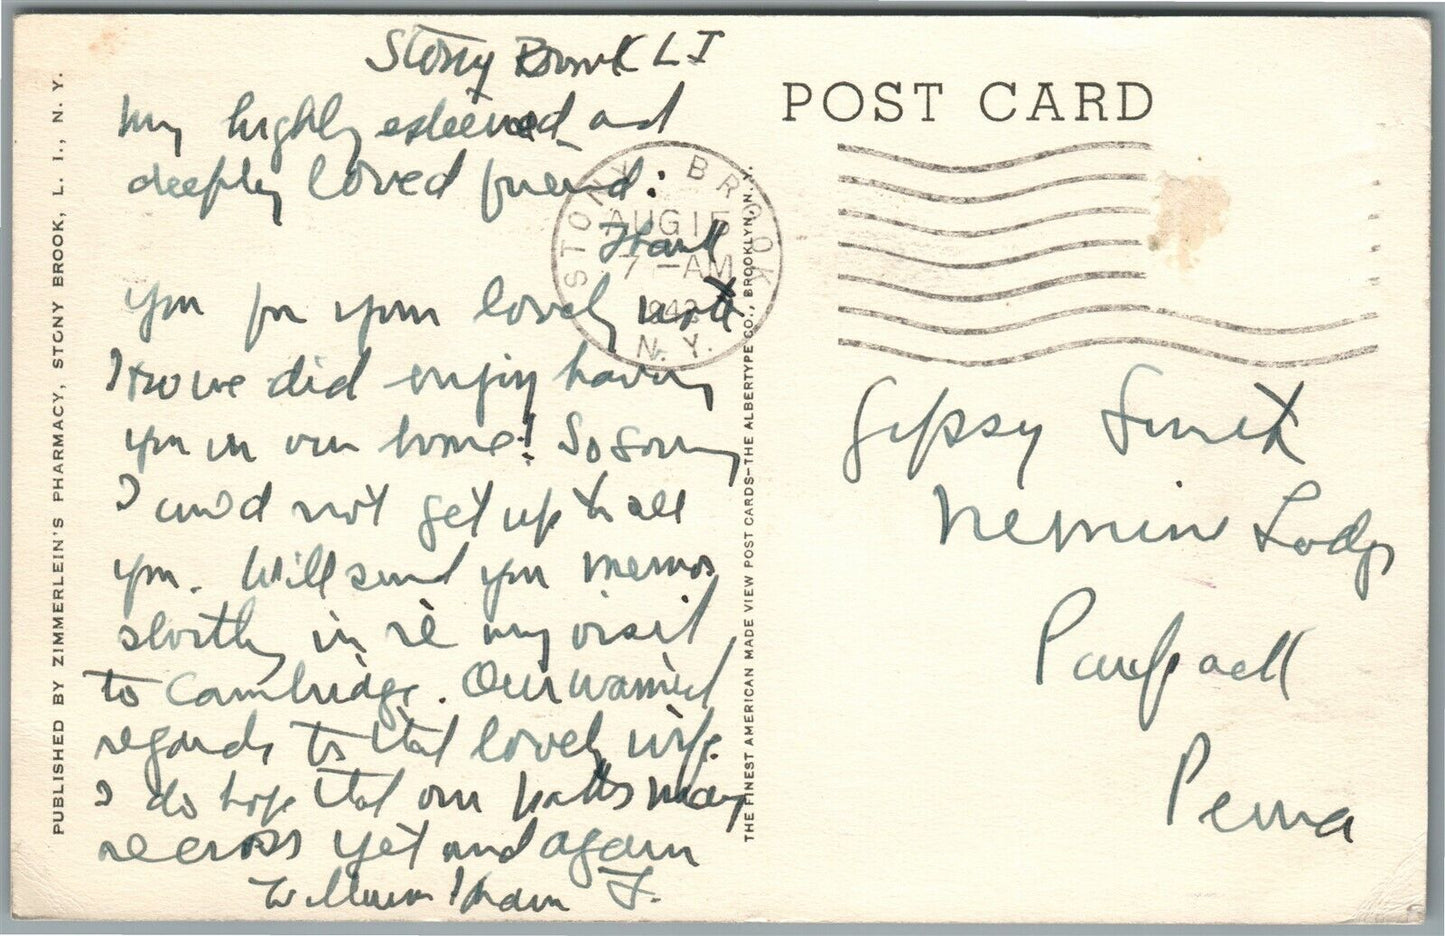 Stony Brook L I
My highly esteemed and
deeply loved friend:
Thank
you for your lovely note
I too we did enjoy having
you in our home! So sorry
I could not get up to all
you. Will send you memos
shortly in re my visit
to Cambridge. Our warmest
regards to that lovely wife.
I do hope that our paths may
recross yet and again
William
POST CARD
STONY BROOK
AUG 15
7-AM
194
N.Y.
Gipsy Smith
Lodge
Penna
PUBLISHED BY ZIMMERLEIN'S PHARMACY, STONY BROOK, L. I., N. Y.
THE FINEST AMERICAN MADE VIEW POST CARDS-THE ALBERTYPE CO., BROOKLYN, N. Y.